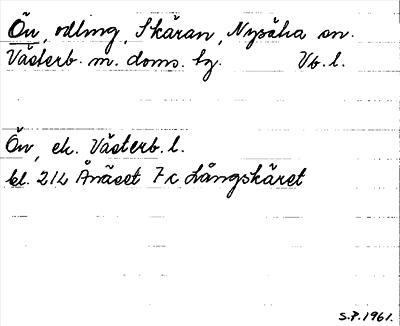 Ön, odling, Skäran, Nysätra sn.
Västerb. m. doms. bg. Vb. l.
Ön, ek. Västerb. l.
bl. 21L Ånäset 7c Långskäret
S.P. 1961.